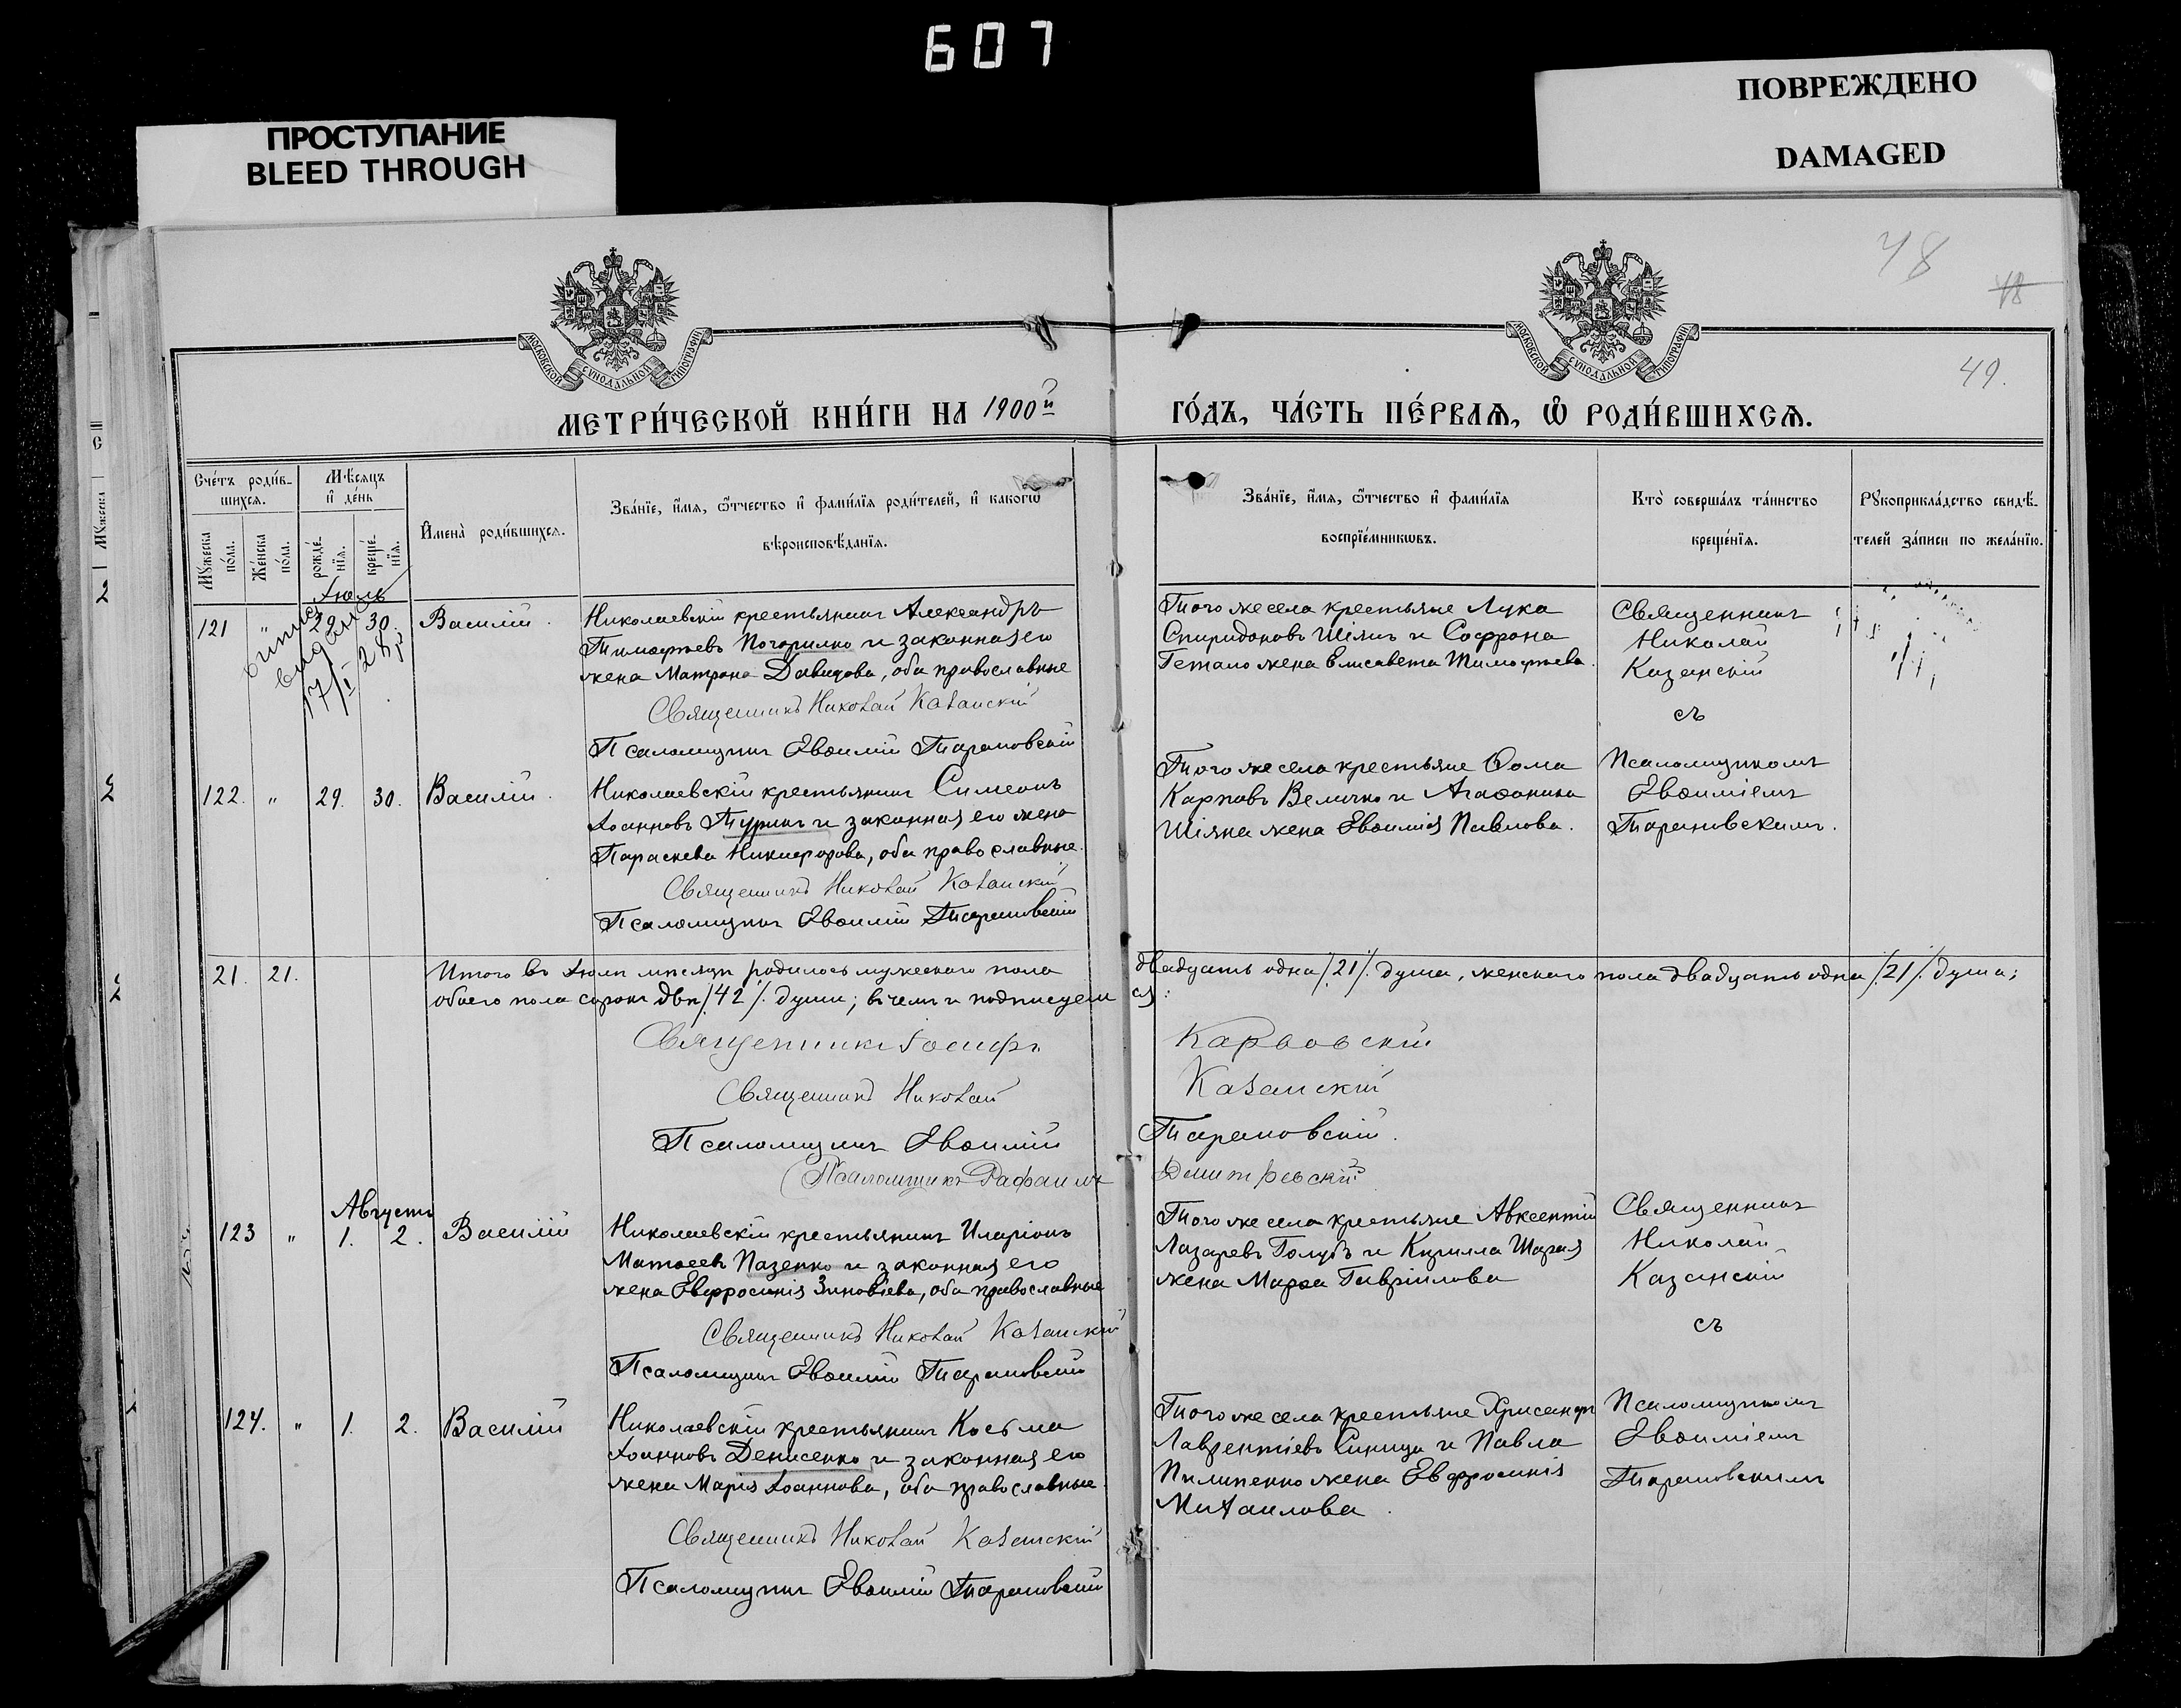 607
ПРОСТУПАНИЕ
BLEED THROUGH
ПОВРЕЖДЕНО
DAMAGED
48
48
49.
МОСКОВСКОЙ СУНОДАЛЬНОЙ ТИПОГРАФІИ
МОСКОВСКОЙ СУНОДАЛЬНОЙ ТИПОГРАФІИ
МЕТРИ́ЧЕСКОЙ КНИ́ГИ НА 1900й
ГО́ДЪ, ЧА́СТЬ ПЕ́РВАѦ, Ѡ҆ РОДИ́ВШИХСѦ.
Сче́тъ роди́в-
шихсѧ.
Мѣ́сѧцъ
и҆ де́нь
Мꙋжеска
по́ла.
Же́нска
по́ла.
рожде́-
нїѧ.
креще́-
нїѧ.
И҆мена̀ роди́вшихсѧ.
Зва́нїе, и҆́мѧ, ѻ҆́тчество и҆ фами́лїѧ роди́телей, и҆ како́гѡ
вѣроисповѣ́данїѧ.
Зва́нїе, и҆́мѧ, ѻ҆́тчество и҆ фами́лїѧ
воспрїе́мникѡвъ.
Кто̀ соверша́лъ та́инство
креще́нїѧ.
Рꙋкоприкла́дство свидѣ́-
телей за́писи по жела́нїю.
Іюль
121 " 29. 30. Василій.
выдана
17/I 28
Николаевскій крестьянинъ Александръ
Тимофѣевъ Погорилко и законная его
жена Матрона Давидова, оба православные
Священникъ Николай Казанскій
Псаломщикъ Евѳимій Тарановскій
Того же села крестьяне Лука
Спиридоновъ Шіянъ и Софрона
Гетало жена Елисавета Тимофѣева.
Священникъ
Николай
Казанскій
съ
122. " 29. 30. Василій.
Николаевскій крестьянинъ Симеонъ
Іоанновъ Туринъ и законная его жена
Параскева Никифорова, оба православные.
Священникъ Николай Казанскій
Псаломщикъ Евѳимій Тарановскій
Того же села крестьяне Ѳома
Карповъ Величко и Агаѳоника
Шіяна жена Евѳимія Павлова.
Псаломщикомъ
Евѳиміемъ
Тарановскимъ.
21. 21.
Итого въ Іюлѣ мѣсяцѣ родилось мужескаго пола двадцать одна /21/. душа, женскаго пола двадцать одна /21/. душа;
обоего пола сорокъ двѣ /42/. души; въ чемъ и подписуемся:
Священникъ Іосифъ Карвовскій
Священникъ Николай Казанскій
Псаломщикъ Евѳимій Тарановскій.
Псаломщикъ Рафаилъ Дмитревскій
Августъ
123 " 1. 2. Василій
Николаевскій крестьянинъ Иларіонъ
Матѳеевъ Пазенко и законная его
жена Евфросинія Зиновіева, оба православные
Священникъ Николай Казанскій
Псаломщикъ Евѳимій Тарановскій
Того же села крестьяне Авксентій
Лазаревъ Голубъ и Кирилла Шарая
жена Марѳа Гавріилова
Священникъ
Николай
Казанскій
съ
124. " 1. 2. Василій
Николаевскій крестьянинъ Косьма
Іоанновъ Денисенко и законная его
жена Марія Іоаннова, оба православные.
Священникъ Николай Казанскій
Псаломщикъ Евѳимій Тарановскій
Того же села крестьяне Хрисанфъ
Лаврентіевъ Синица и Павла
Пилипенко жена Евфросинія
Михаилова.
Псаломщикомъ
Евѳиміемъ
Тарановскимъ